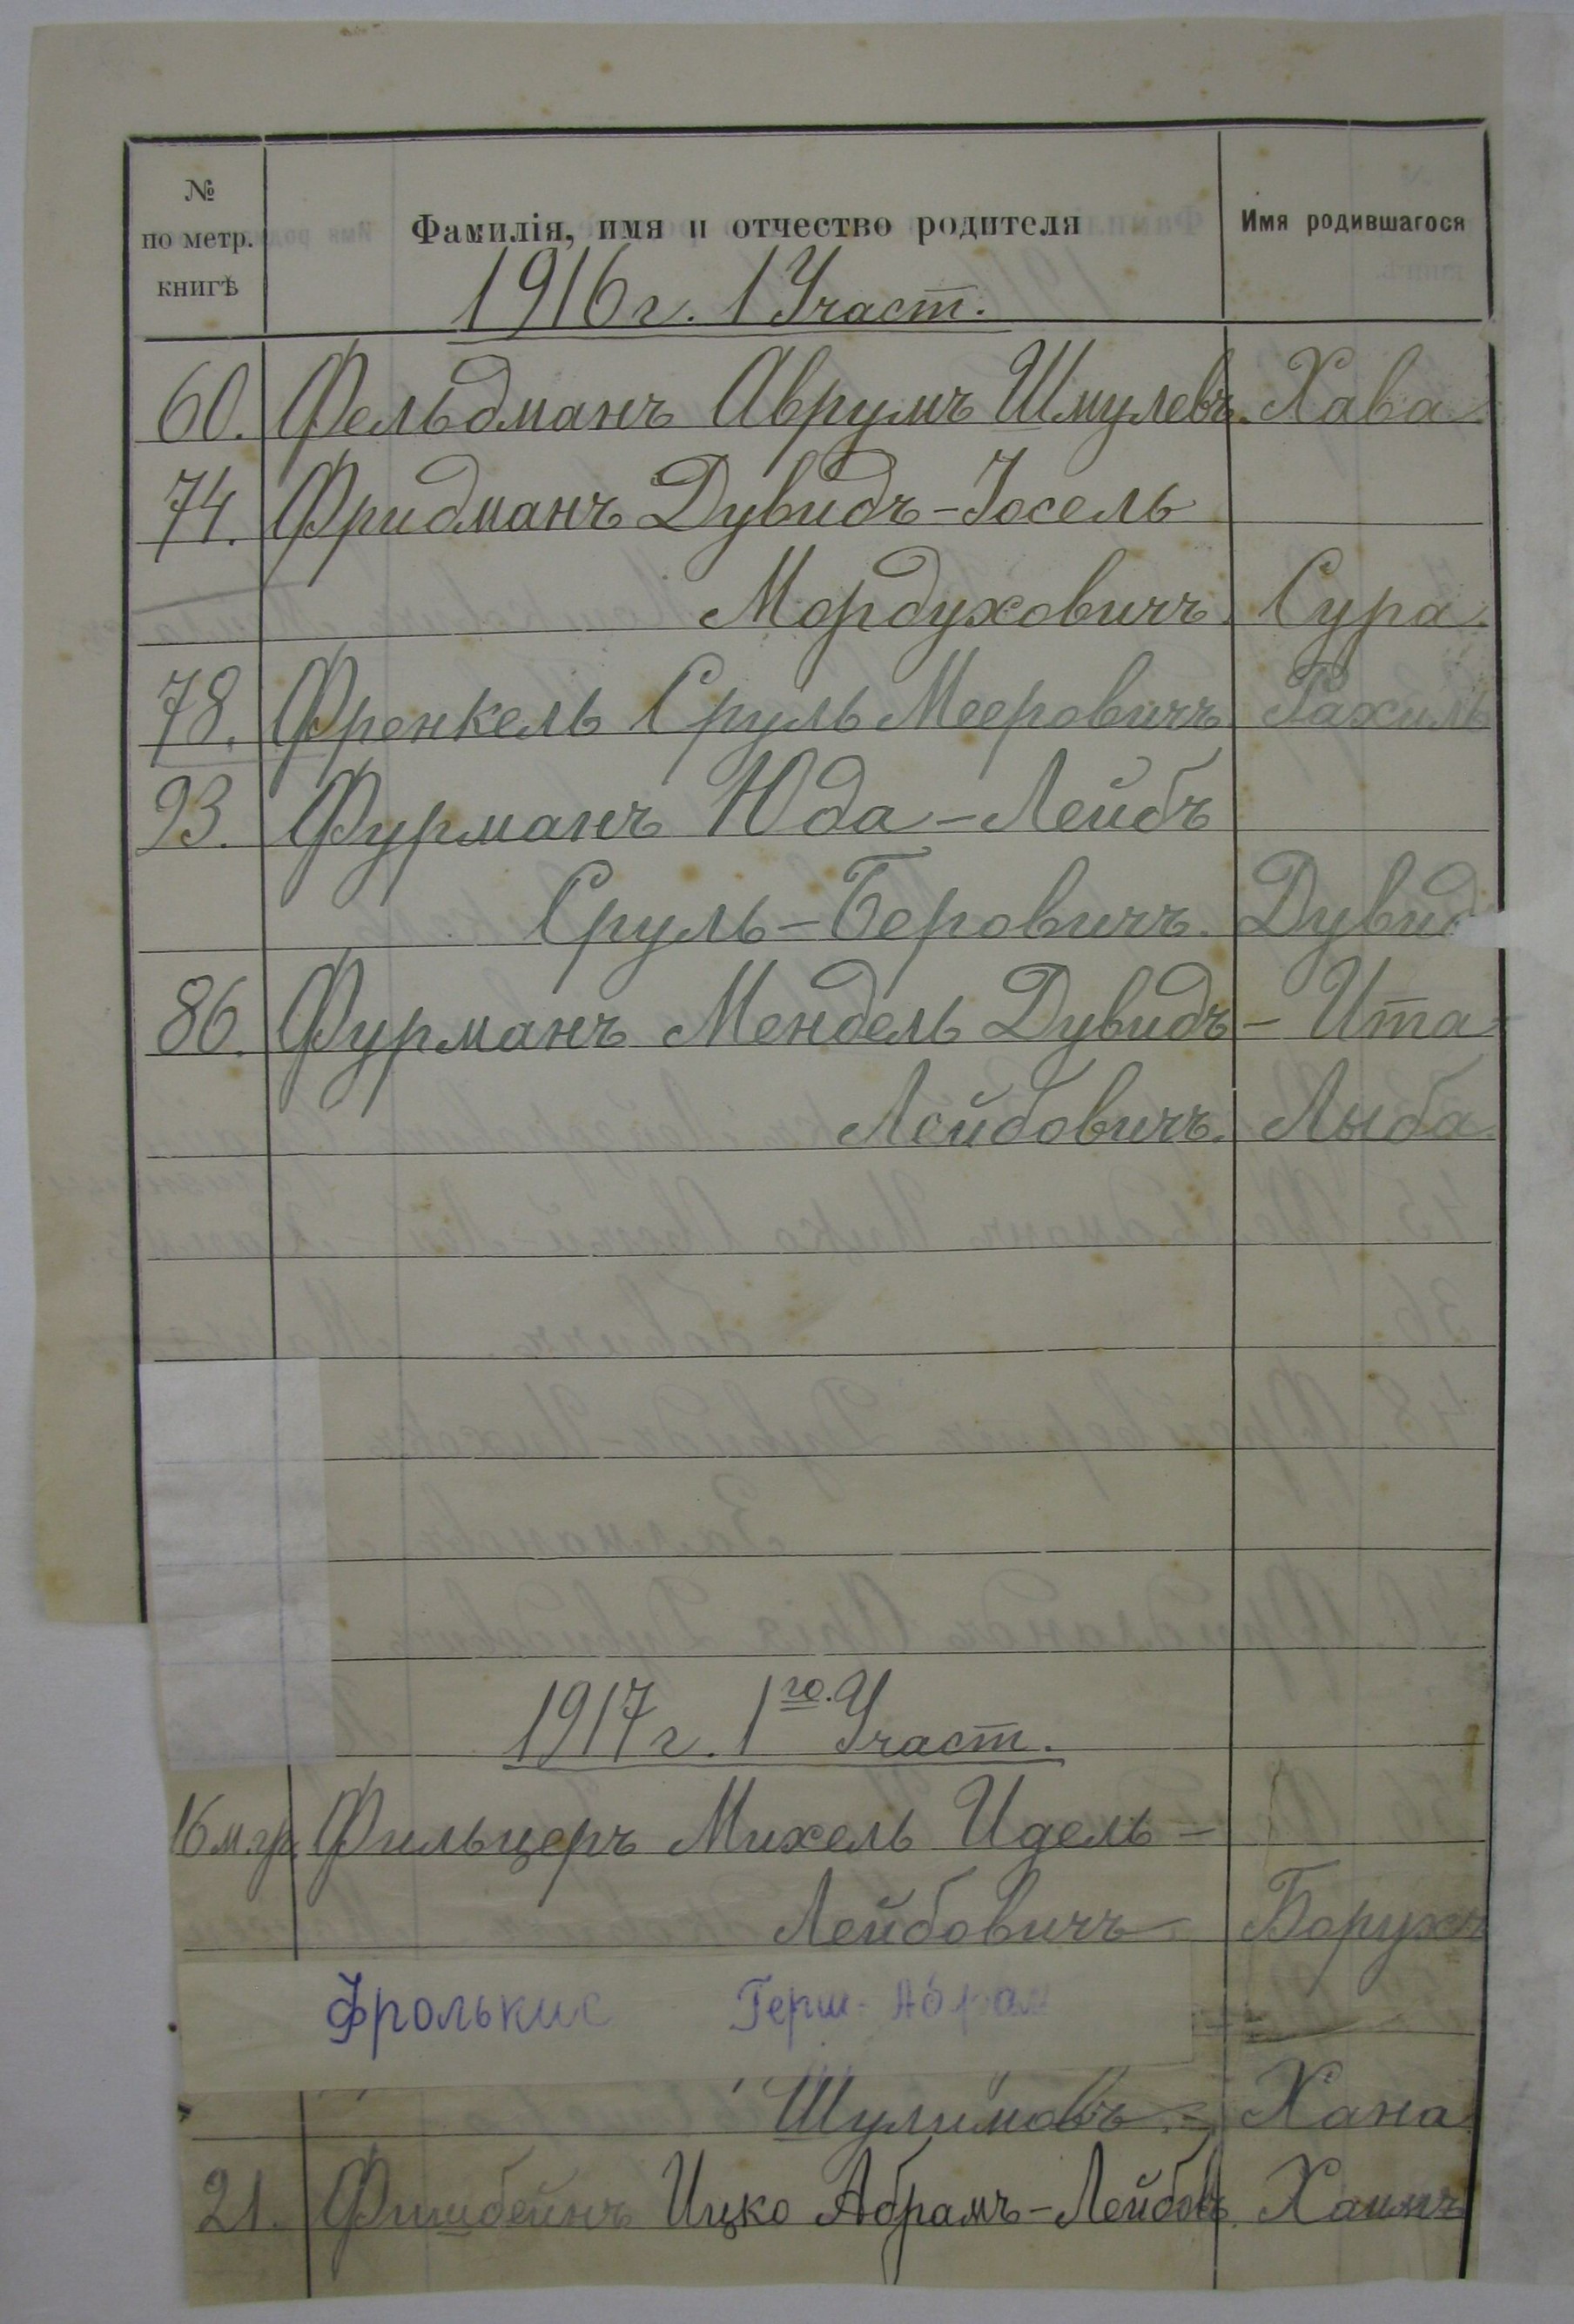 № по метр. книгѣ
Фамилія, имя и отчество родителя
Имя родившагося
1916 г. 1 Участ.
60. Фельдманъ Аврумъ Шмулевъ. Хава
74. Фридманъ Дувидъ-Іосель
Мордуховичъ. Сура.
78. Френкель Сруль Мееровичъ Рахиль
93. Фурманъ Юда-Лейбъ
Сруль-Беровичъ. Дувид
86. Фурманъ Мендель Дувидъ- Ита-
Лейбовичъ. Лыба.
1917 г. 1го. Участ.
16 м.гр. Фильцеръ Михель Идель-
Лейбовичъ Борухъ
Фролькис Герш-Абрам
Шулимовъ. Хана
21. Фишбейнъ Ицко Абрамъ-Лейбовъ. Хаимъ